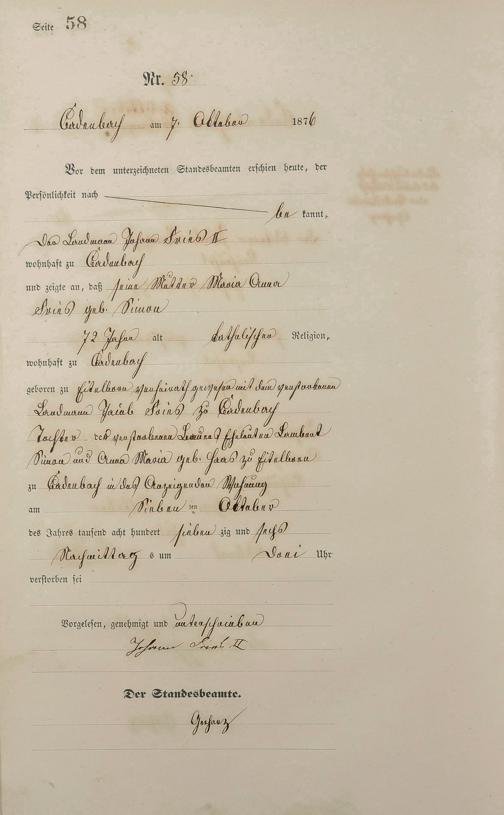 Seite 58
Nr. 58.
Cadenbach am 7. Oktober 1876
Vor dem unterzeichneten Standesbeamten erschien heute, der
Persönlichkeit nach
be kannt,
der Landmann Johann Fries II
wohnhaft zu Cadenbach
und zeigte an, daß seine Mutter Maria Anna
Fries geb. Simon
72 Jahre alt katholischer Religion,
wohnhaft zu Cadenbach
geboren zu Eitelborn verheirath gewesen mit dem verstorbenen
Landmann Jacob Fries zu Cadenbach
Tochter der verstorbenen Eheleuten Lambert
Simon und Anna Maria geb. Haas zu Eitelborn
zu Cadenbach in des Anzeigenden Wohnung
am Sieben ten Oktober
des Jahres tausend acht hundert sieben zig und sechs
Nachmittag s um Drei Uhr
verstorben sei
Vorgelesen, genehmigt und unterschrieben
Johann Fries II
Der Standesbeamte.